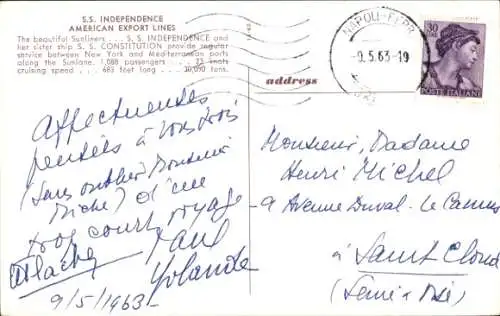 S.S. INDEPENDENCE
AMERICAN EXPORT LINES
The beautiful Sunliners . . . S. S. INDEPENDENCE and
her sister ship S. S. CONSTITUTION provide regular
service between New York and Mediterranean ports
along the Sunlane. 1,088 passengers . . . 23 knots
cruising speed . . . 683 feet long . . . 30,050 tons.
address
NAPOLI-FERR
-9.5.63-19
30
POSTE ITALIANE
Affectueuses
pensées à vous trois
(sans oublier Monsieur
Miche) d'un
trop court voyage
Paul
Yolande
9/5/1963
Monsieur, Madame
Henri Michel
9 Avenue Duval-Le Camus
à Saint Cloud
(Seine & Oise)